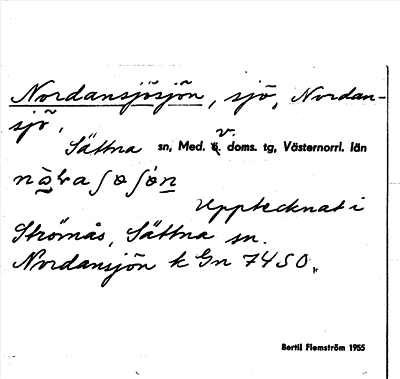 Nordansjösjön, sjö, Nordan-
sjö,
Sättna sn, Med. v. doms. tg, Västernorrl. län
Upptecknat i
Strömås, Sättna sn.
Nordansjön k Gn 7450.
Bertil Flemström 1955